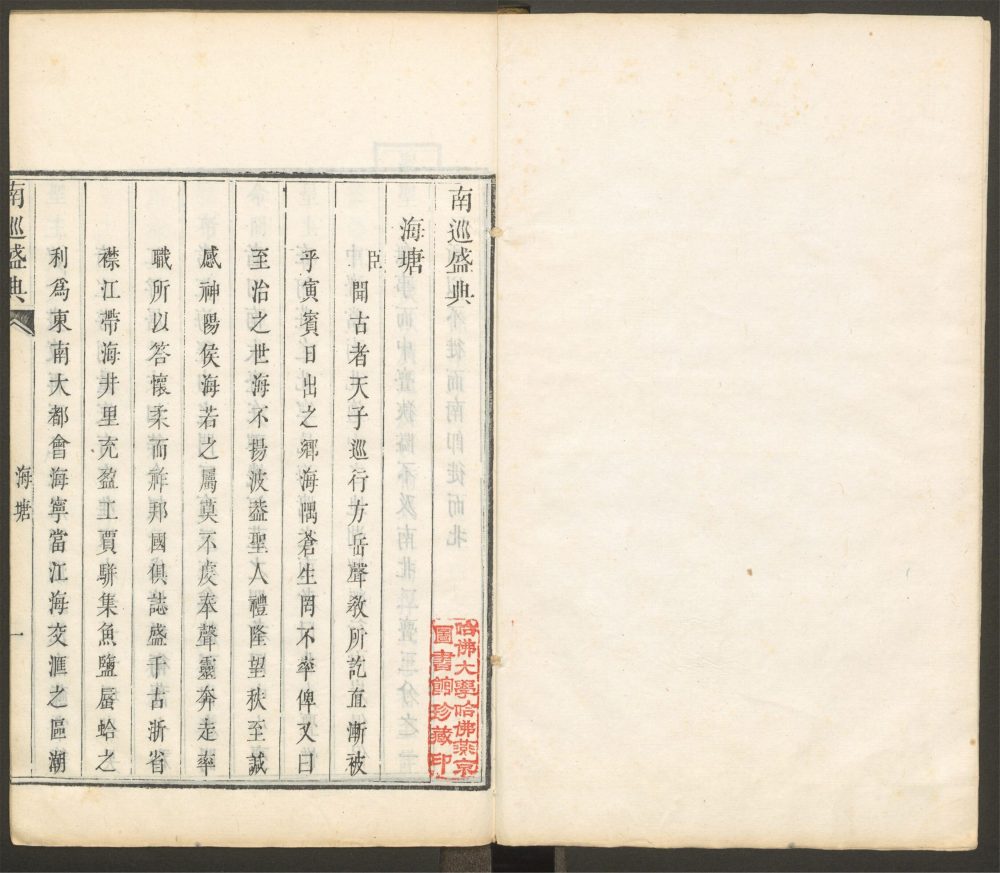 南巡盛典
海塘
臣聞古者天子巡行方岳聲敎所訖直漸被
乎寅賓日出之鄉海隅蒼生罔不率俾又曰
至治之世海不揚波葢聖人禮隆望秩至誠
感神陽侯海若之屬莫不虔奉聲靈奔走率
職所以答懷柔而祚邦國俱誌盛于古浙省
襟江帶海井里充盈工賈駢集魚鹽蜃蛤之
利爲東南大都會海寧當江海交滙之區潮
南巡盛典
海塘
一
哈佛大學哈佛燕京
圖書館珍藏印